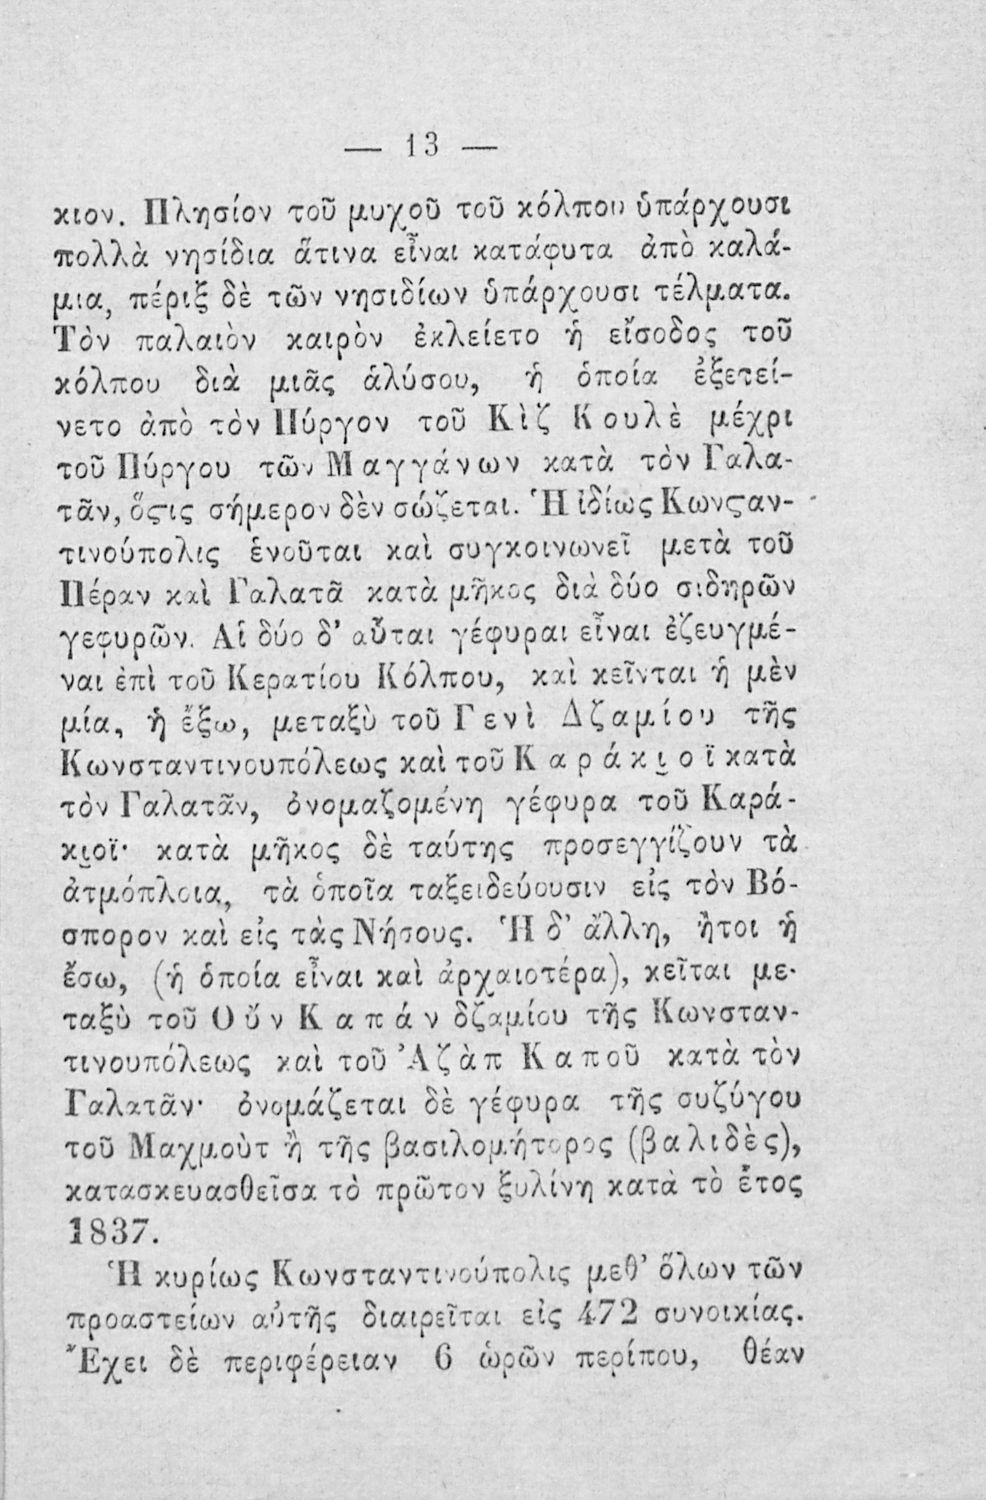 — 13 —
κιον. Πλησίον τοῦ μυχοῦ τοῦ κόλπου ὑπάρχουσι
πολλὰ νησίδια ἅτινα εἶναι κατάφυτα ἀπὸ καλά-
μια, πέριξ δὲ τῶν νησιδίων ὑπάρχουσι τέλματα.
Τὸν παλαιὸν καιρὸν ἐκλείετο ἡ εἴσοδος τοῦ
κόλπου διὰ μιᾶς ἁλύσου, ἡ ὁποία ἐξετεί-
νετο ἀπὸ τὸν Πύργον τοῦ Κὶζ Κουλὲ μέχρι
τοῦ Πύργου τῶν Μαγγάνων κατὰ τὸν Γαλα-
τᾶν, ὅςτις σήμερον δὲν σώζεται. Ἡ ἰδίως Κωνϛαν-
τινούπολις ἑνοῦται καὶ συγκοινωνεῖ μετὰ τοῦ
Πέραν καὶ Γαλατᾶ κατὰ μῆκος διὰ δύο σιδηρῶν
γεφυρῶν. Αἱ δύο δ’ αὗται γέφυραι εἶναι ἐζευγμέ-
ναι ἐπὶ τοῦ Κερατίου Κόλπου, καὶ κεῖνται ἡ μὲν
μία, ἡ ἔξω, μεταξὺ τοῦ Γενὶ Δζαμίου τῆς
Κωνσταντινουπόλεως καὶ τοῦ Καράκι̯οϊ κατὰ
τὸν Γαλατᾶν, ὀνομαζομένη γέφυρα τοῦ Καρά-
κι̯οϊ· κατὰ μῆκος δὲ ταύτης προσεγγίζουν τὰ
ἀτμόπλοια, τὰ ὁποῖα ταξειδεύουσιν εἰς τὸν Βό-
σπορον καὶ εἰς τὰς Νήσους. Ἡ δ’ ἄλλη, ἤτοι ἡ
ἔσω, (ἡ ὁποία εἶναι καὶ ἀρχαιοτέρα), κεῖται με-
ταξὺ τοῦ Οὖν Καπάν δζαμίου τῆς Κωνσταν-
τινουπόλεως καὶ τοῦ Ἀζὰπ Καποῦ κατὰ τὸν
Γαλατᾶν· ὀνομάζεται δὲ γέφυρα τῆς συζύγου
τοῦ Μαχμοὺτ ἢ τῆς βασιλομήτορος (βαλιδὲς),
κατασκευασθεῖσα τὸ πρῶτον ξυλίνη κατὰ τὸ ἔτος
1837.
Ἡ κυρίως Κωνσταντινούπολις μεθ’ ὅλων τῶν
προαστείων αὐτῆς διαιρεῖται εἰς 472 συνοικίας.
Ἔχει δὲ περιφέρειαν 6 ὡρῶν περίπου, θέαν